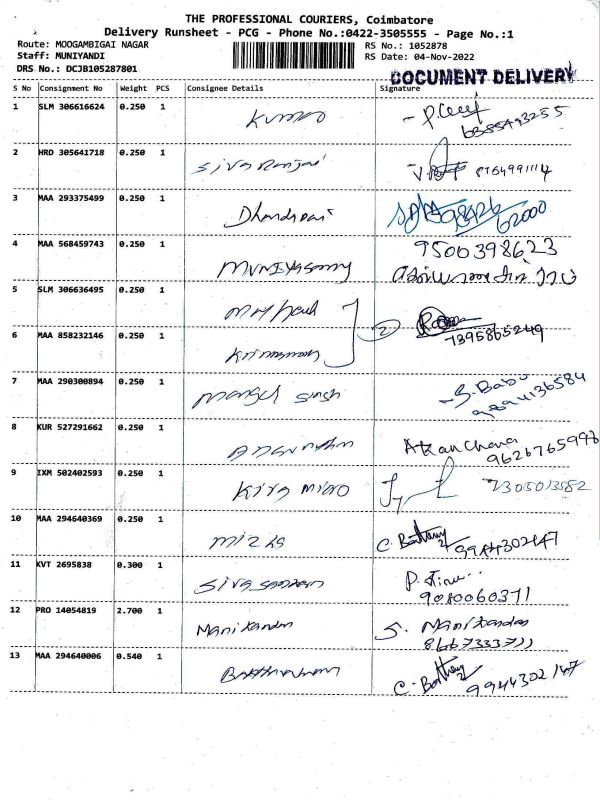 THE PROFESSIONAL COURIERS, Coimbatore
Delivery Runsheet - PCG - Phone No.:0422-3505555 - Page No.:1
Route: MOOGAMBIGAI NAGAR RS No.: 1052878
Staff: MUNIYANDI RS Date: 04-Nov-2022
DRS No.: DCJB105287801
DOCUMENT DELIVERY
S No Consignment No Weight PCS Consignee Details Signature
1 SLM 306616624 0.250 1
2 HRD 305641718 0.250 1 Sivaranjani
3 MAA 293375499 0.250 1 98426 62000
4 MAA 568459743 0.250 1 Muniyasamy 9500398623
5 SLM 306636495 0.250 1
2 7395865249
6 MAA 858232146 0.250 1
7 MAA 290300894 0.250 1 Mangal Singh S. Babu
9894136584
8 KUR 527291662 0.250 1 A Kanchana
9626765997
9 IXM 502402593 0.250 1 Kiva micro 7305013582
10 MAA 294640369 0.250 1 9944302147
11 KVT 2695838 0.300 1 Sivasankaran
9080060371
12 PRO 14054819 2.700 1 Manikandan S. Manikandan
8667333711
13 MAA 294640006 0.540 1 9944302147